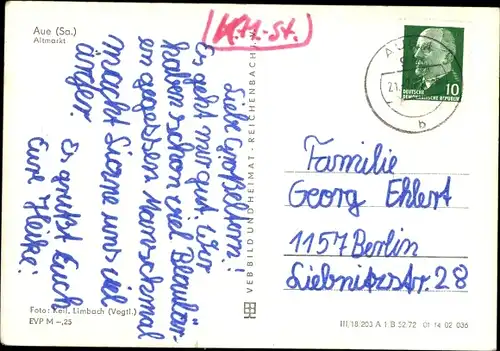 Aue (Sa.)
Altmarkt
(K.H.-St.)
Liebe Großeltern!
Es geht mir gut. Wir
haben schon viel Blaubär-
en gegessen. Manschmal
macht Sione uns viel
ärger.
Es grüßt Euch
Eure Heike.
Foto: Keil, Limbach (Vogtl.)
EVP M –,25
VEB BILD UND HEIMAT · REICHENBACH i. V.
10
DEUTSCHE
DEMOKRATISCHE REPUBLIK
b
Familie
Georg Ehlert
1157 Berlin
Liebnitzstr. 28
III/18/203 A 1 B 52/72 01 14 02 036